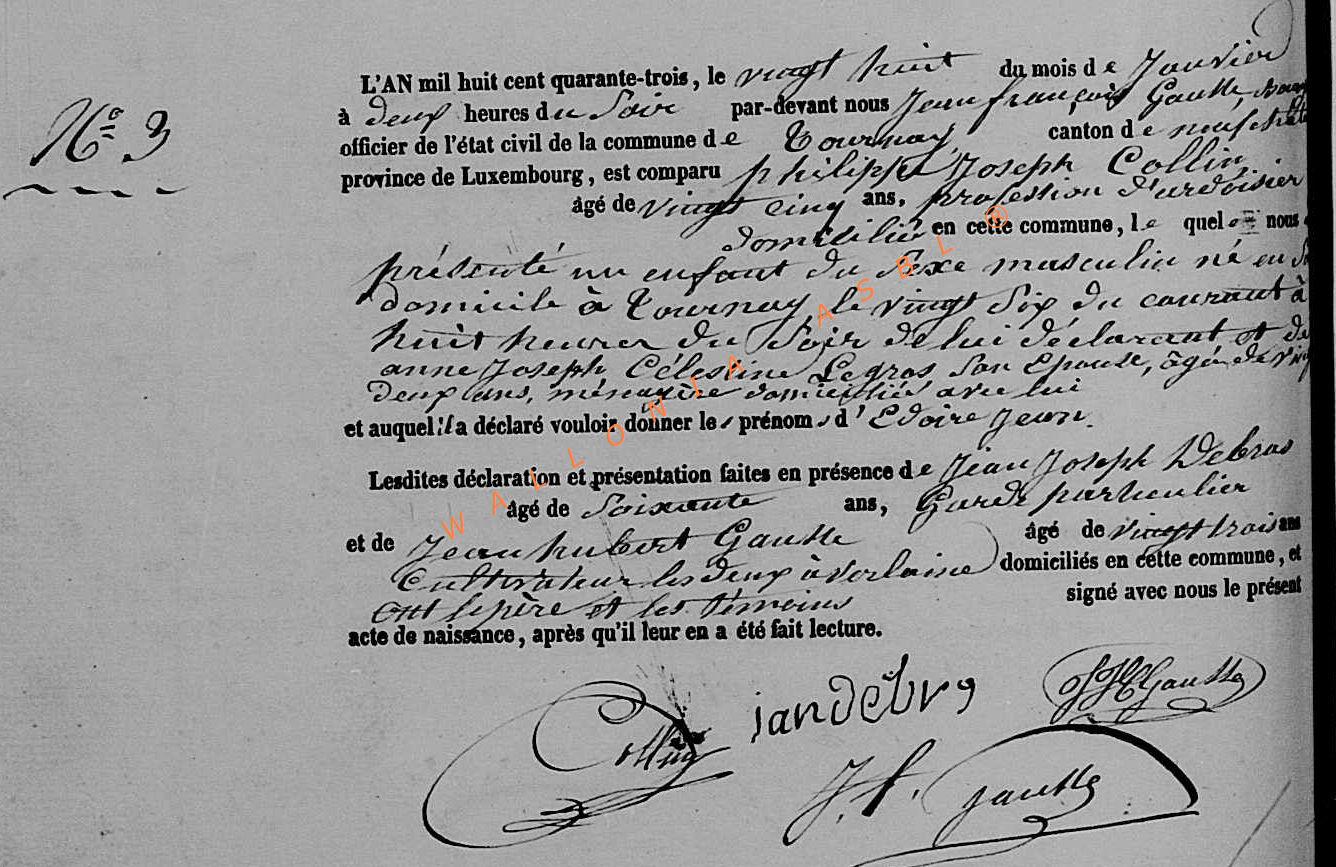 N° 3
L'AN mil huit cent quarante-trois, le vingt huit du mois de Janvier
à deux heures du Soir par-devant nous Jean françois Gausse,
officier de l'état civil de la commune de Tournay canton de neufchât
province de Luxembourg, est comparu philippe Joseph Collin
âgé de vingt cinq ans, profession d'ardoisier
domicilié en cette commune, lequel nous
présenté un enfant du sexe masculin né en
domicile à Tournay, le vingt Six du courant à
huit heures du Soir de lui déclarant et de
anne Joseph Célestine Legros Son Epouse, âgée de
deux ans, ménagère domiciliés avec lui
et auquel il a déclaré vouloir donner les prénoms d'Edoire Jean.
Lesdites déclaration et présentation faites en présence de Jean Joseph Debras
âgé de Soixante ans, Garde particulier
et de Jean hubert Gausse âgé de vingt trois ans
Cultivateur les deux à verlaine domiciliés en cette commune, et
ont le père et les témoins signé avec nous le présent
acte de naissance, après qu'il leur en a été fait lecture.
Collin Gausse
J. f. Gausse
WALLONIA ASBL ®